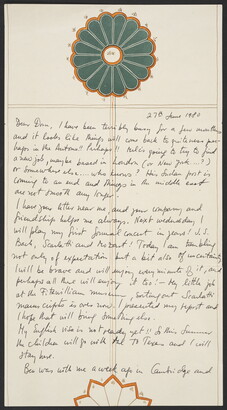 27th June 1980
Dear Dom, I have been terribly busy for a few months
and it looks like things will come back to quietness per-
haps in the Autumn? Perhaps!! Hal is going to try to find
a new job, maybe based in London (or New York...?)
or somewhere else... who knows? His Sudan post is
coming to an end and things in the middle east
are not smooth any longer.
I have your letter near me and your company and
friendship helps me always. Next wednesday I
will play my first formal concert in years! J.S.
Bach, Scarlatti and Mozart! Today I am trembling
not only of expectation but a bit also of uncertainty
I will be brave and will enjoy every minute of it, and
perhaps all this will enjoy it too! - My little job
at the Fitzwilliam museum, sorting out Scarlatti
manuscripts is over now. I presented my report and
I hope that will bring something else.
My English visa is not ready yet!! So this Summer
the children will go with Hal to Texas and I will
stay here.
Ben was with me a week ago in Cambridge and